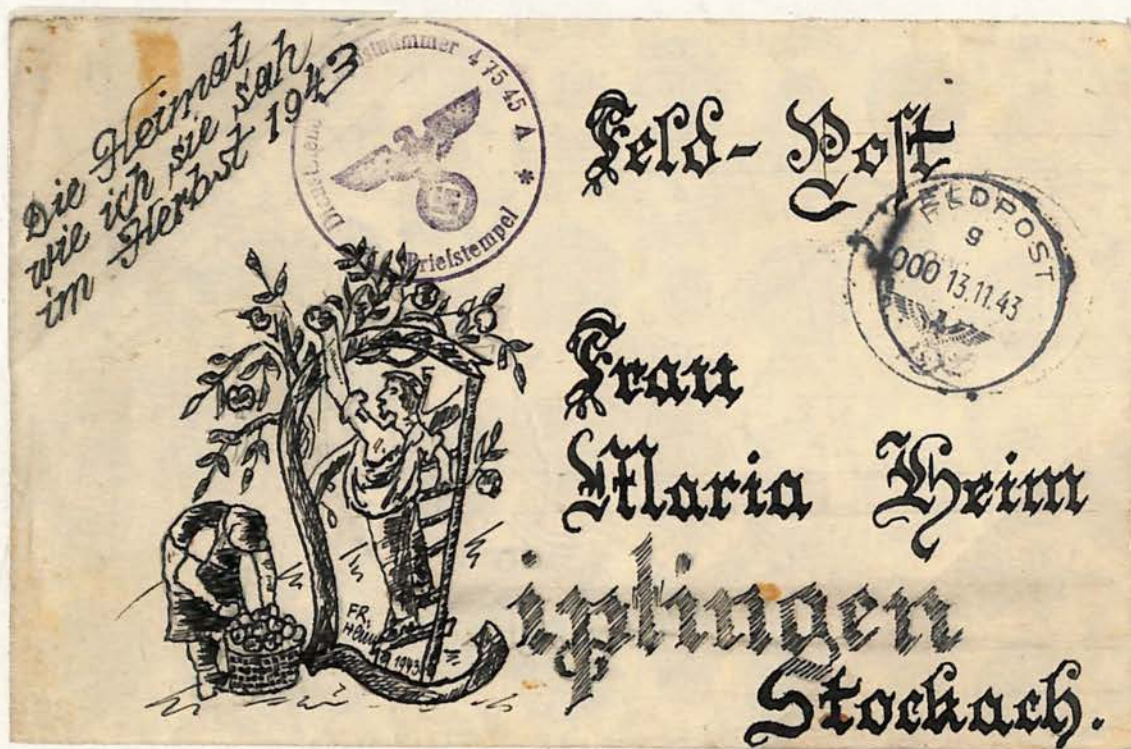 Die Heimat
wie ich sie sah
im Herbst 1943
Feldpostnummer 47545 A *
Briefstempel
Feld-Post
FELDPOST
g
000 13.11.43
Frau
Maria Heim
Liptingen
Stockach.
FR.
HEIM
1943